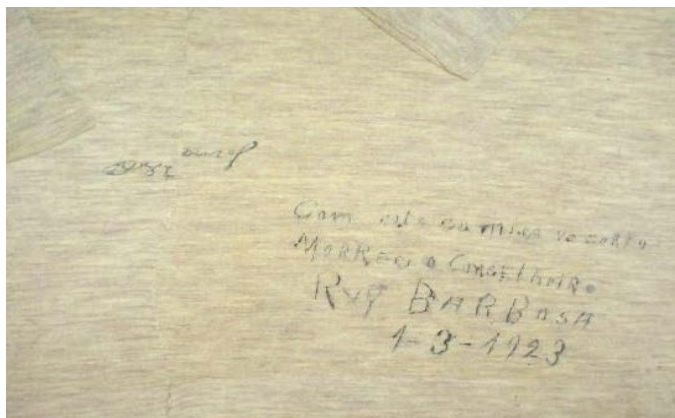 Com esta camisa no corpo
MoRReu o ConselHeiRo
RuY BARBosA
1-3-1923